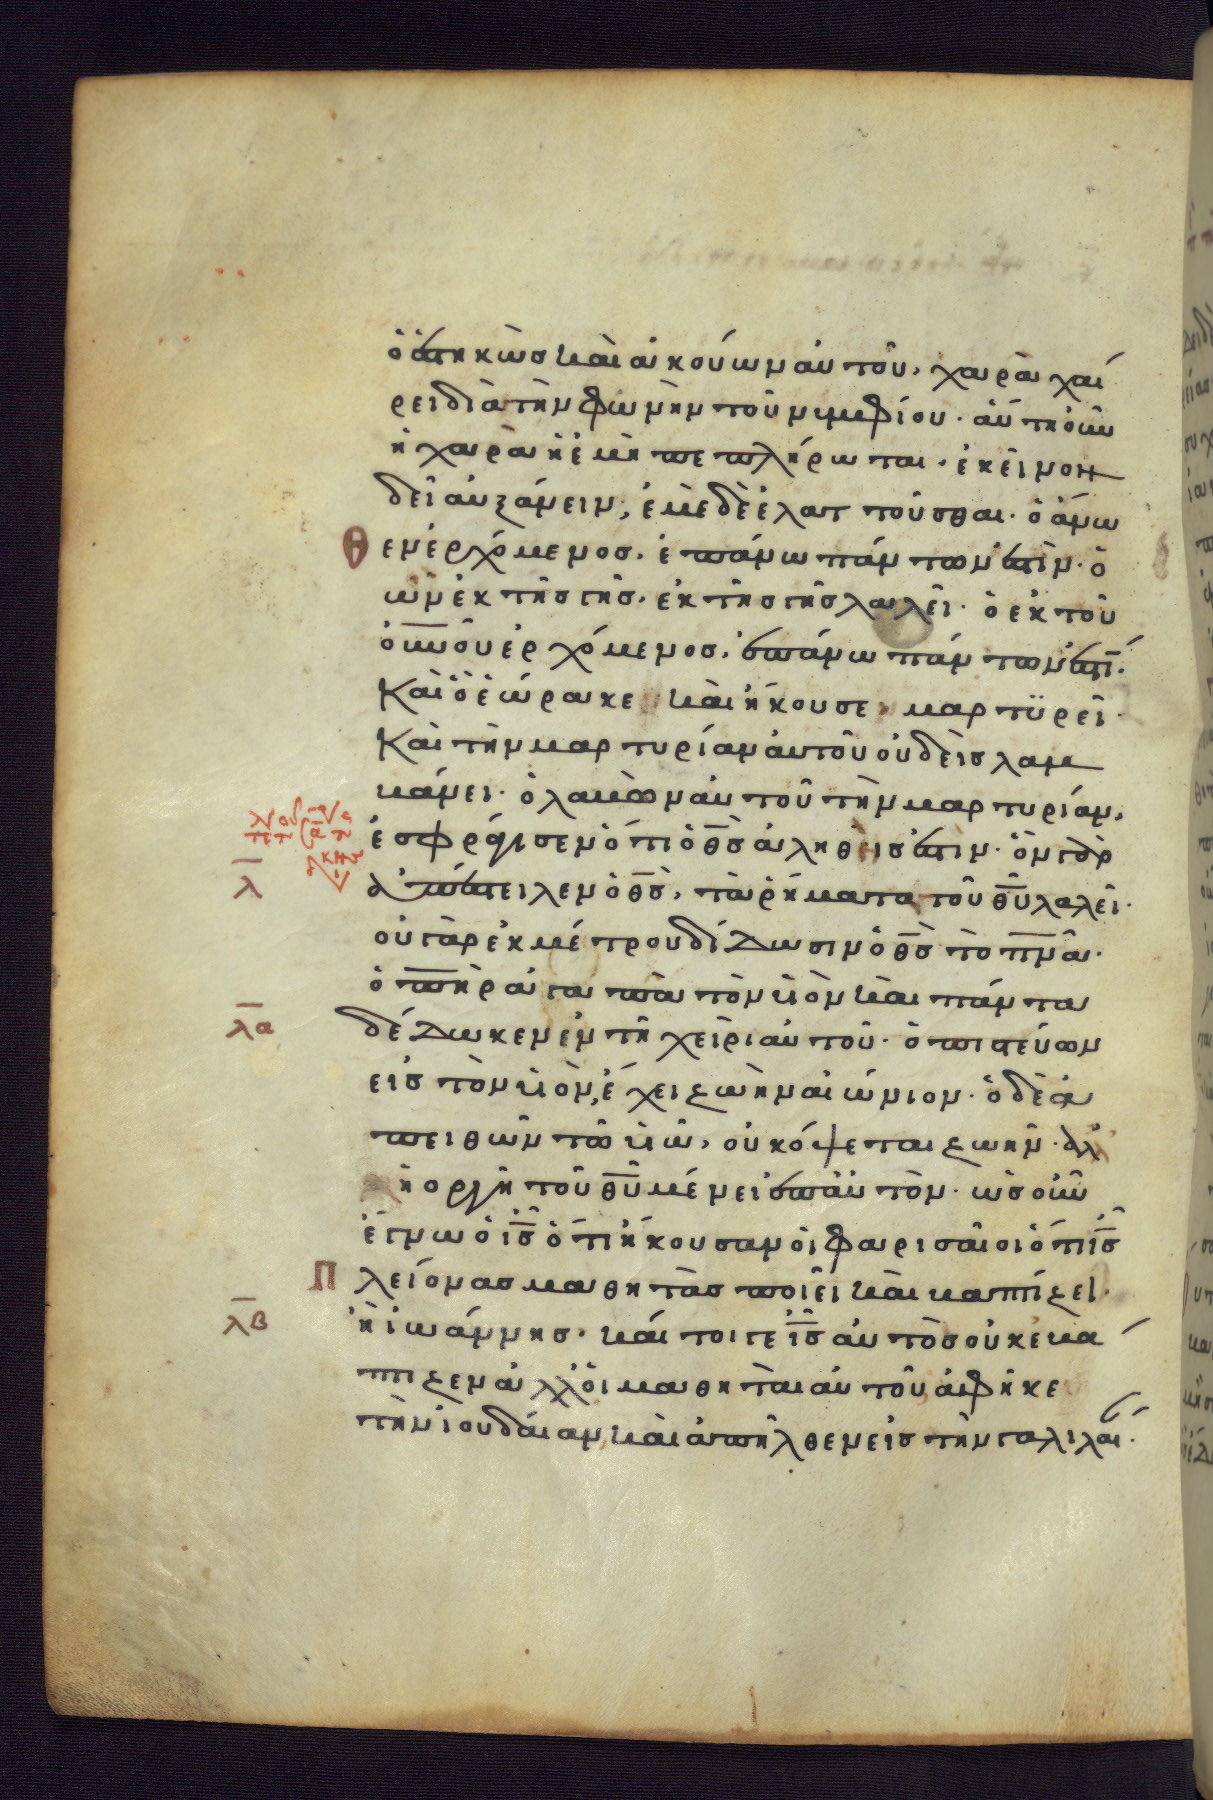 ὁ ἑστηκὼς καὶ ἀκούων αὐτοῦ, χαρᾷ χαί
ρει διὰ τὴν φωνὴν τοῦ νυμφίου· αὕτη οὖν
ἡ χαρὰ ἡ ἐμὴ πεπλήρωται· ἐκεῖνον
δεῖ αὐξάνειν, ἐμὲ δὲ ἐλαττοῦσθαι· ὁ ἄνω
Θ εν ἐρχόμενος, ἐπάνω πάντων ἐστίν· ὁ
ὢν ἐκ τῆς γῆς, ἐκ τῆς γῆς λαλεῖ· ὁ ἐκ τοῦ
οὐ̅ν̅οῦ ἐρχόμενος, ἐπάνω πάντων ἐστί·
Καὶ ὃ ἑώρακε καὶ ἤκουσε, μαρτϋρεῖ·
Καὶ τὴν μαρτυρίαν αὐτοῦ οὐδεὶς λαμ
βάνει· ὁ λαβὼν αὐτοῦ τὴν μαρτυρίαν,
ἐσφράγισεν ὅτι ὁ θ̅ς̅ ἀληθεις ἐστιν· ὃν γὰρ
λ̅ ἀπέστειλεν ὁ θ̅ς̅, τὰ ῥήματα τοῦ θ̅υ̅ λαλεῖ·
οὐ γὰρ ἐκ μέτρου δίδωσιν ὁ θ̅ς̅ τὸ π̅ν̅α̅·
ὁ π̅η̅ρ̅ ἀγαπᾷ τὸν υἱὸν καὶ πάντα
λ̅α̅ δέδωκεν ἐν τῇ χειρὶ αὐτοῦ· ὁ πιστεύων
εἰς τὸν υἱὸν, ἔχει ζωὴν αἰώνιον· ὁ δὲ ἀ
πειθῶν τῷ υἱῷ, οὐκ ὄψεται ζωήν· ἀλλ'
ἡ ὀργὴ τοῦ θ̅υ̅ μένει ἐπ' αὐτόν· ὡς οὖν
ἔγνω ὁ ι̅ς̅ ὅτι ἤκουσαν οἱ φαρισαῖοι ὅτι ι̅ς̅
Π λείονας μαθητὰς ποιεῖ καὶ βαπτίζει·
λ̅β̅ ἢ ἰωάννης· καί τοι γε ι̅ς̅ αὐτὸς οὐκ ἐβά
πτιζεν ἀλλ' οἱ μαθηταὶ αὐτοῦ ἀφῆκε
τὴν ἰουδαίαν, καὶ ἀπῆλθεν εἰς τὴν γαλιλαί·